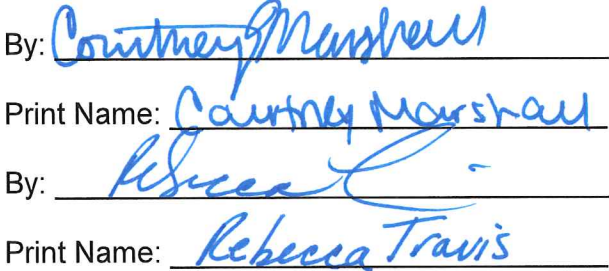 By: Courtney Marshall
Print Name: Courtney Marshall
By: Rebecca
Print Name: Rebecca Travis